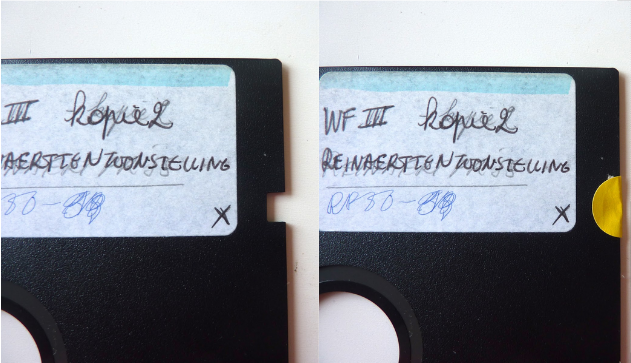 III kopie 2
AERTTENTOONSTELLING
80-89
X
WF III kopie 2
REINAERTTENTOONSTELLING
RP80-89
X